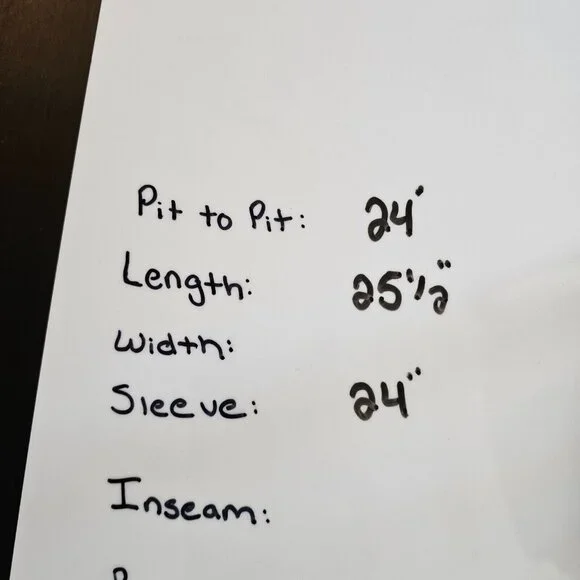 Pit to Pit: 24'
Length: 25 1/2"
Width:
Sleeve: 24"
Inseam: